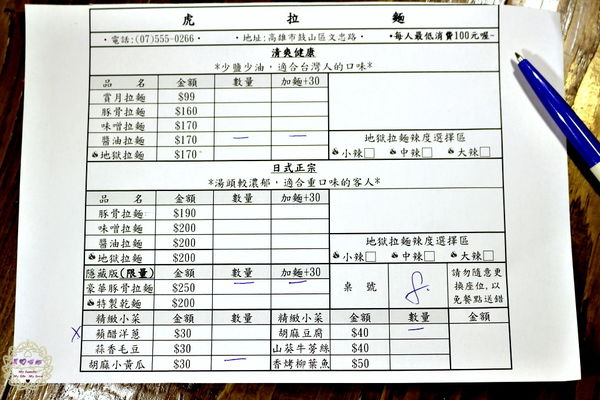 虎 拉 麵
・電話:(07)555-0266・ ・地址:高雄市鼓山區文忠路・ ・每人最低消費100元喔~
清爽健康
*少鹽少油，適合台灣人的口味*
品 名 金額 數量 加麵+30
賞月拉麵 $99
豚骨拉麵 $160
味噌拉麵 $170
醬油拉麵 $170 一 一
地獄拉麵 $170
地獄拉麵辣度選擇區
小辣□ 中辣□ 大辣□
日式正宗
*湯頭較濃郁，適合重口味的客人*
品 名 金額 數量 加麵+30
豚骨拉麵 $190
味噌拉麵 $200
醬油拉麵 $200
地獄拉麵 $200
地獄拉麵辣度選擇區
小辣□ 中辣□ 大辣□
隱藏版(限量) 金額 數量 加麵+30
豪華豚骨拉麵 $250 一 一
特製乾麵 $200
桌 號 8.
請勿隨意更
換座位,以
免餐點送錯
精緻小菜 金額 數量 精緻小菜 金額 數量 金額
x 蘋醋洋蔥 $30 胡麻豆腐 $40 一
蒜香毛豆 $30 山葵牛蒡絲 $40
胡麻小黃瓜 $30 一 香烤柳葉魚 $50